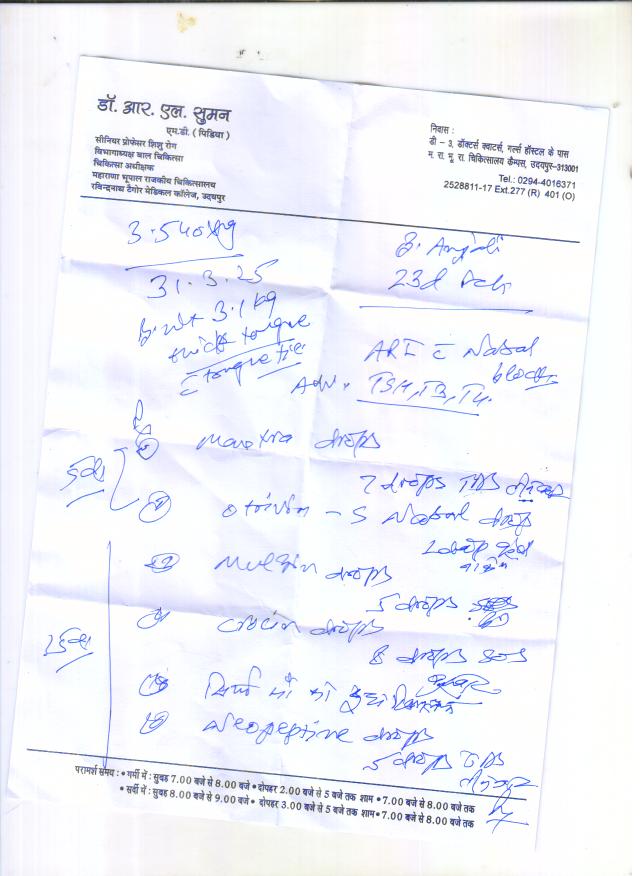 डॉ. आर. एल. सुमन
एम.डी. ( पिडिया )
सीनियर प्रोफेसर शिशु रोग
विभागाध्यक्ष बाल चिकित्सा
चिकित्सा अधीक्षक
महाराणा भूपाल राजकीय चिकित्सालय
रविन्द्रनाथ टैगोर मेडिकल कॉलेज, उदयपुर
निवास :
डी - 3, डॉक्टर्स क्वाटर्स, गर्ल्स हॉस्टल के पास
म. रा. भू. रा. चिकित्सालय कैम्पस, उदयपुर-313001
Tel.: 0294-4016371
2528811-17 Ext.277 (R) 401 (O)
3.540 kg
B. Anjali
31.3.25
23d
B. wt 3.1 kg
thick tongue
c tongue tie
ARI c Nasal
block
Adv. TSH, T3, T4
drops
7 drops TDS
Otrivin - S Nasal drop
drops
5 drops
Crocin drops
8 drops SOS
सिर्फ माँ का दूध
Neopeptine drops
5 drops TDS
परामर्श समय : • गर्मी में : सुबह 7.00 बजे से 8.00 बजे • दोपहर 2.00 बजे से 5 बजे तक शाम • 7.00 बजे से 8.00 बजे तक
• सर्दी में : सुबह 8.00 बजे से 9.00 बजे • दोपहर 3.00 बजे से 5 बजे तक शाम • 7.00 बजे से 8.00 बजे तक